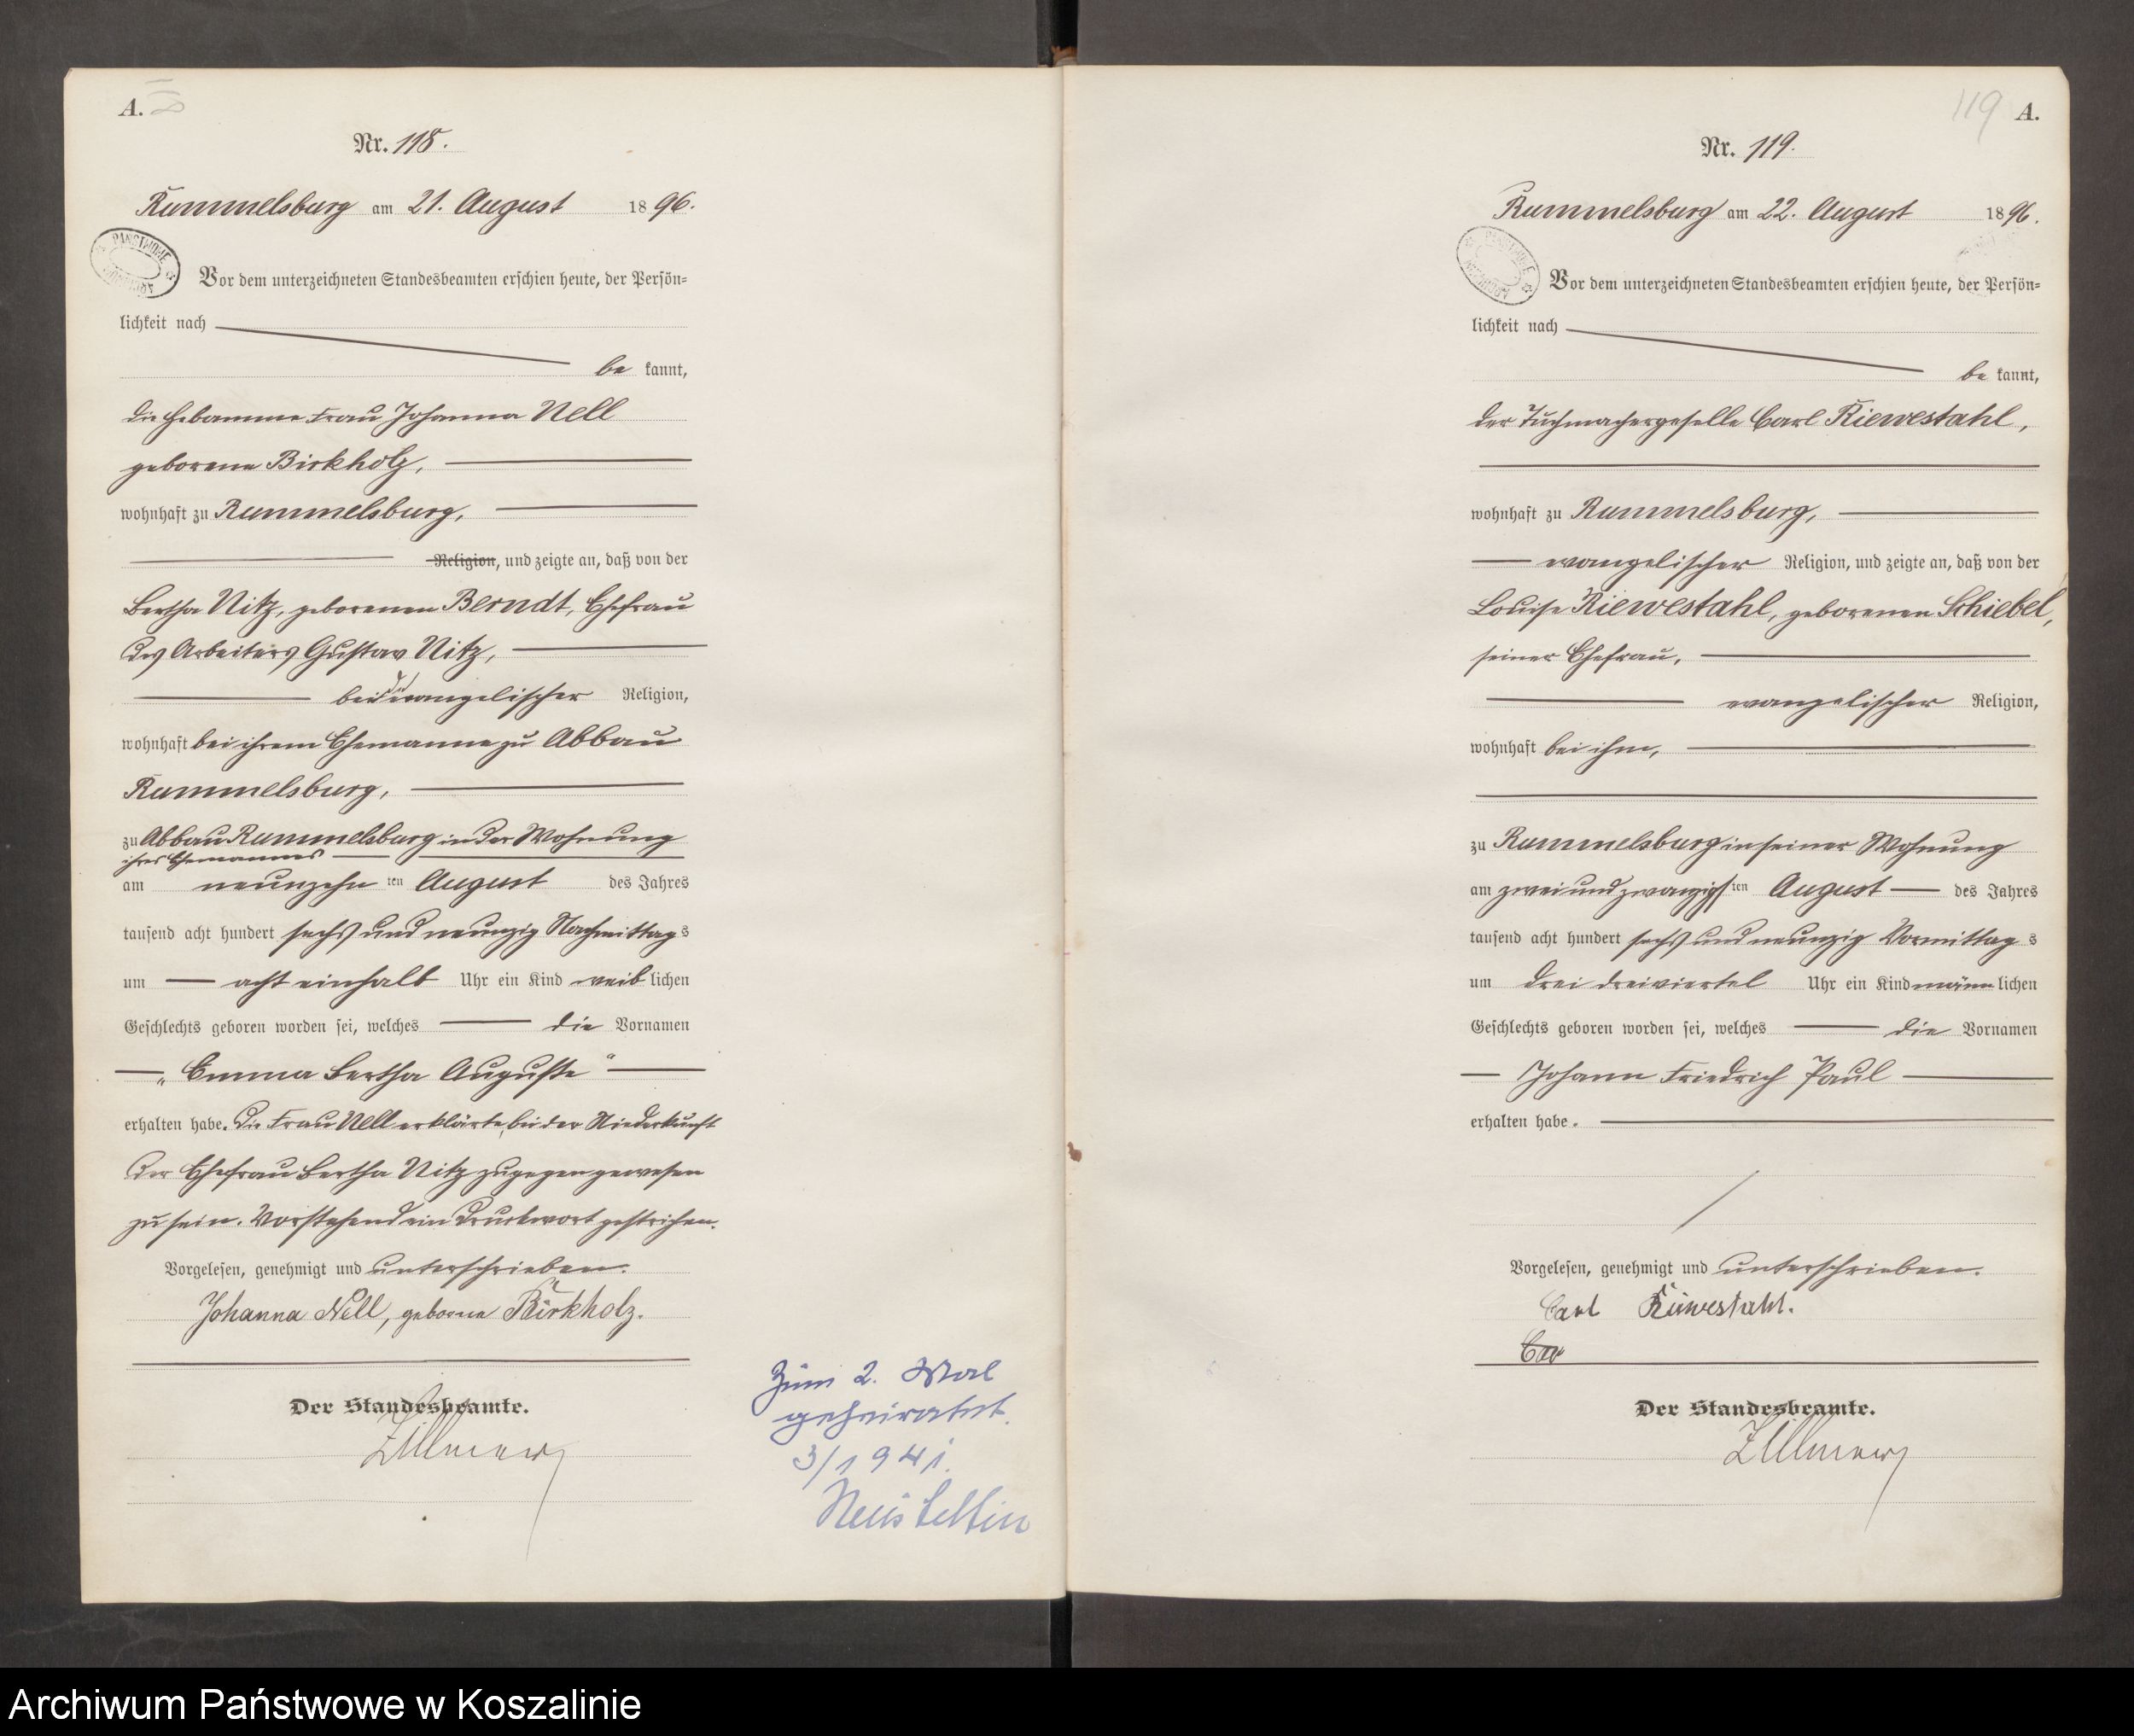 A.
Nr. 118.
Rummelsburg am 21. August 1896.
PAŃSTWOWE ARCHIWUM
Vor dem unterzeichneten Standesbeamten erschien heute, der Persön=
lichkeit nach
be kannt,
die Hebamme Frau Johanna Nell
geborene Birkholz,
wohnhaft zu Rummelsburg,
Religion, und zeigte an, daß von der
Bertha Nitz, geborenen Berndt, Ehefrau
des Arbeiters Gustav Nitz,
beide evangelischer Religion,
wohnhaft bei ihrem Ehemanne zu Abbau
Rummelsburg,
zu Abbau Rummelsburg in der Wohnung
ihres Ehemannes
am neunzehn ten August des Jahres
tausend acht hundert sechs und neunzig Nachmittags
um acht einhalb Uhr ein Kind weib lichen
Geschlechts geboren worden sei, welches die Vornamen
„Emma Bertha Auguste“
erhalten habe. Die Frau Nell erklärte, bei der Niederkunft
der Ehefrau Bertha Nitz zugegen gewesen
zu sein. Vorstehend ein Druckwort gestrichen.
Vorgelesen, genehmigt und unterschrieben.
Johanna Nell, geborne Birkholz.
Der Standesbeamte.
Zum 2. Mal
geheiratet.
3/1941.
Neustettin
119 A.
Nr. 119.
Rummelsburg am 22. August 1896.
PAŃSTWOWE ARCHIWUM
Vor dem unterzeichneten Standesbeamten erschien heute, der Persön=
lichkeit nach
be kannt,
der Tuchmachergeselle Carl Kiewestahl,
wohnhaft zu Rummelsburg,
evangelischer Religion, und zeigte an, daß von der
Louise Kiewestahl, geborenen Schiebel,
seiner Ehefrau,
evangelischer Religion,
wohnhaft bei ihm,
zu Rummelsburg in seiner Wohnung
am zwei und zwanzigsten August des Jahres
tausend acht hundert sechs und neunzig Vormittag s
um drei dreiviertel Uhr ein Kind männ lichen
Geschlechts geboren worden sei, welches die Vornamen
Johann Friedrich Paul
erhalten habe.
Vorgelesen, genehmigt und unterschrieben.
Carl Kiewestahl.
Car
Der Standesbeamte.
Archiwum Państwowe w Koszalinie